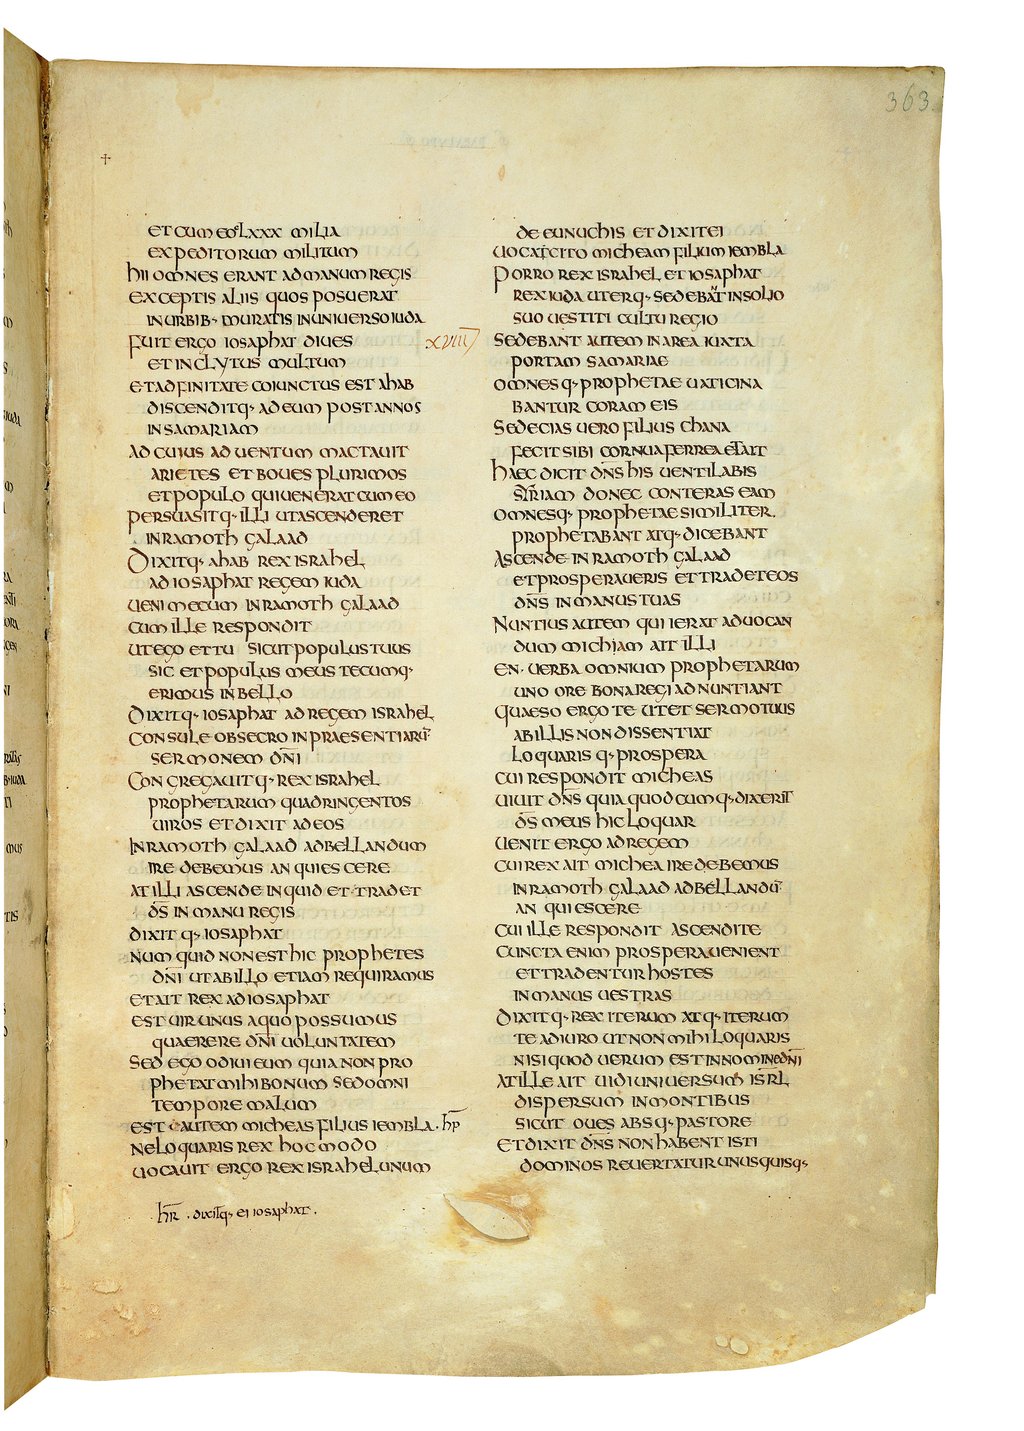 363
✝
ET CUM EO CLXXX MILIA
EXPEDITORUM MILITUM
HII OMNES ERANT AD MANUM REGIS
EXCEPTIS ALIIS QUOS POSUERAT
IN URBIB· MURATIS IN UNIUERSO IUDA
FUIT ERGO IOSAPHAT DIUES
ET INCLYTUS MULTUM
ET ADFINITATE COIUNCTUS EST AHAB
DISCENDITQ· AD EUM POST ANNOS
IN SAMARIAM
AD CUIUS ADUENTUM MACTAUIT
ARIETES ET BOUES PLURIMOS
ET POPULO QUI UENERAT CUM EO
PERSUASITQ· ILLI UT ASCENDERET
IN RAMOTH GALAAD
DIXITQ· AHAB REX ISRAHEL
AD IOSAPHAT REGEM IUDA
UENI MECUM IN RAMOTH GALAAD
CUM ILLE RESPONDIT
UT EGO ET TU SICUT POPULUS TUUS
SIC ET POPULUS MEUS TECUMQ·
ERIMUS IN BELLO
DIXITQ· IOSAPHAT AD REGEM ISRAHEL
CONSULE OBSECRO IN PRAESENTIARŪ
SERMONEM DN̄I
CONGREGAUITQ· REX ISRAHEL
PROPHETARUM QUADRINGENTOS
UIROS ET DIXIT AD EOS
IN RAMOTH GALAAD AD BELLANDUM
IRE DEBEMUS AN QUIESCERE
AT ILLI ASCENDE INQUID ET TRADET
D̄S IN MANU REGIS
DIXITQ· IOSAPHAT
NUMQUID NON EST HIC PROPHETES
DN̄I UT AB ILLO ETIAM REQUIRAMUS
ET AIT REX AD IOSAPHAT
EST UIR UNUS A QUO POSSUMUS
QUAERERE DN̄I UOLUNTATEM
SED EGO ODIUI EUM QUIA NON PRO
PHETAT MIHI BONUM SED OMNI
TEMPORE MALUM
EST AUTEM MICHEAS FILIUS IEMBLA · hp̄
NE LOQUARIS REX HOC MODO
UOCAUIT ERGO REX ISRAHEL UNUM
hr̄ · dixitq· ei iosaphat ·
DE EUNUCHIS ET DIXIT EI
UOCA CITO MICHEAM FILIUM IEMBLA
PORRO REX ISRAHEL ET IOSAPHAT
REX IUDA UTERQ· SEDEBAT IN SOLIO
SUO UESTITI CULTU REGIO
XVIII
SEDEBANT AUTEM IN AREA IUXTA
PORTAM SAMARIAE
OMNESQ· PROPHETAE UATICINA
BANTUR CORAM EIS
SEDECIAS UERO FILIUS CHANA
FECIT SIBI CORNUA FERREA ET AIT
HAEC DICIT DN̄S HIS UENTILABIS
SYRIAM DONEC CONTERAS EAM
OMNESQ· PROPHETAE SIMILITER
PROPHETABANT ATQ· DICEBANT
ASCENDE IN RAMOTH GALAAD
ET PROSPERAUERIS ET TRADET EOS
DN̄S IN MANUS TUAS
NUNTIUS AUTEM QUI IERAT AD UOCAN
DUM MICHIAM AIT ILLI
EN UERBA OMNIUM PROPHETARUM
UNO ORE BONA REGI ADNUNTIANT
QUAESO ERGO TE UT ET SERMO TUUS
AB ILLIS NON DISSENTIAT
LOQUARISQ· PROSPERA
CUI RESPONDIT MICHEAS
UIUIT DN̄S QUIA QUODCUMQ· DIXERIT
D̄S MEUS HIC LOQUAR
UENIT ERGO AD REGEM
CUI REX AIT MICHEA IRE DEBEMUS
IN RAMOTH GALAAD AD BELLANDŪ
AN QUIESCERE
CUI ILLE RESPONDIT ASCENDITE
CUNCTA ENIM PROSPERA UENIENT
ET TRADENTUR HOSTES
IN MANUS UESTRAS
DIXITQ· REX ITERUM ATQ· ITERUM
TE ADIURO UT NON MIHI LOQUARIS
NISI QUOD UERUM EST IN NOMINE DN̄I
AT ILLE AIT UIDI UNIUERSUM ISR̄L
DISPERSUM IN MONTIBUS
SICUT OUES ABSQ· PASTORE
ET DIXIT DN̄S NON HABENT ISTI
DOMINOS REUERTATUR UNUSQUISQ·